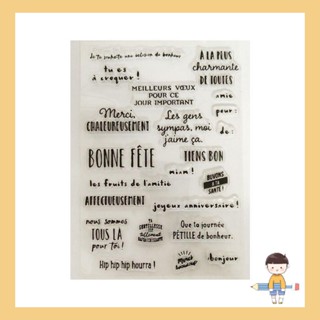 Je te souhaite une saison de bonheur
tu es
à croquer !
À LA PLUS
charmante
DE TOUTES
MEILLEURS VŒUX
POUR CE
JOUR IMPORTANT
amie
pour :
de :
Merci,
CHALEUREUSEMENT
Les gens
sympas, moi
j'aime ça.
BONNE FÊTE
TIENS BON
miam !
les fruits de l'amitié
BUVONS
À TA
SANTÉ !
AFFECTUEUSEMENT
joyeux anniversaire !
nous sommes
TOUS LÀ
pour Toi !
Que ta journée
PÉTILLE de bonheur.
Hip hip hip hourra !
Merci
bonjour